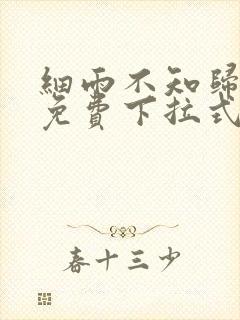 細雨不知歸
免費下拉式
春十三少